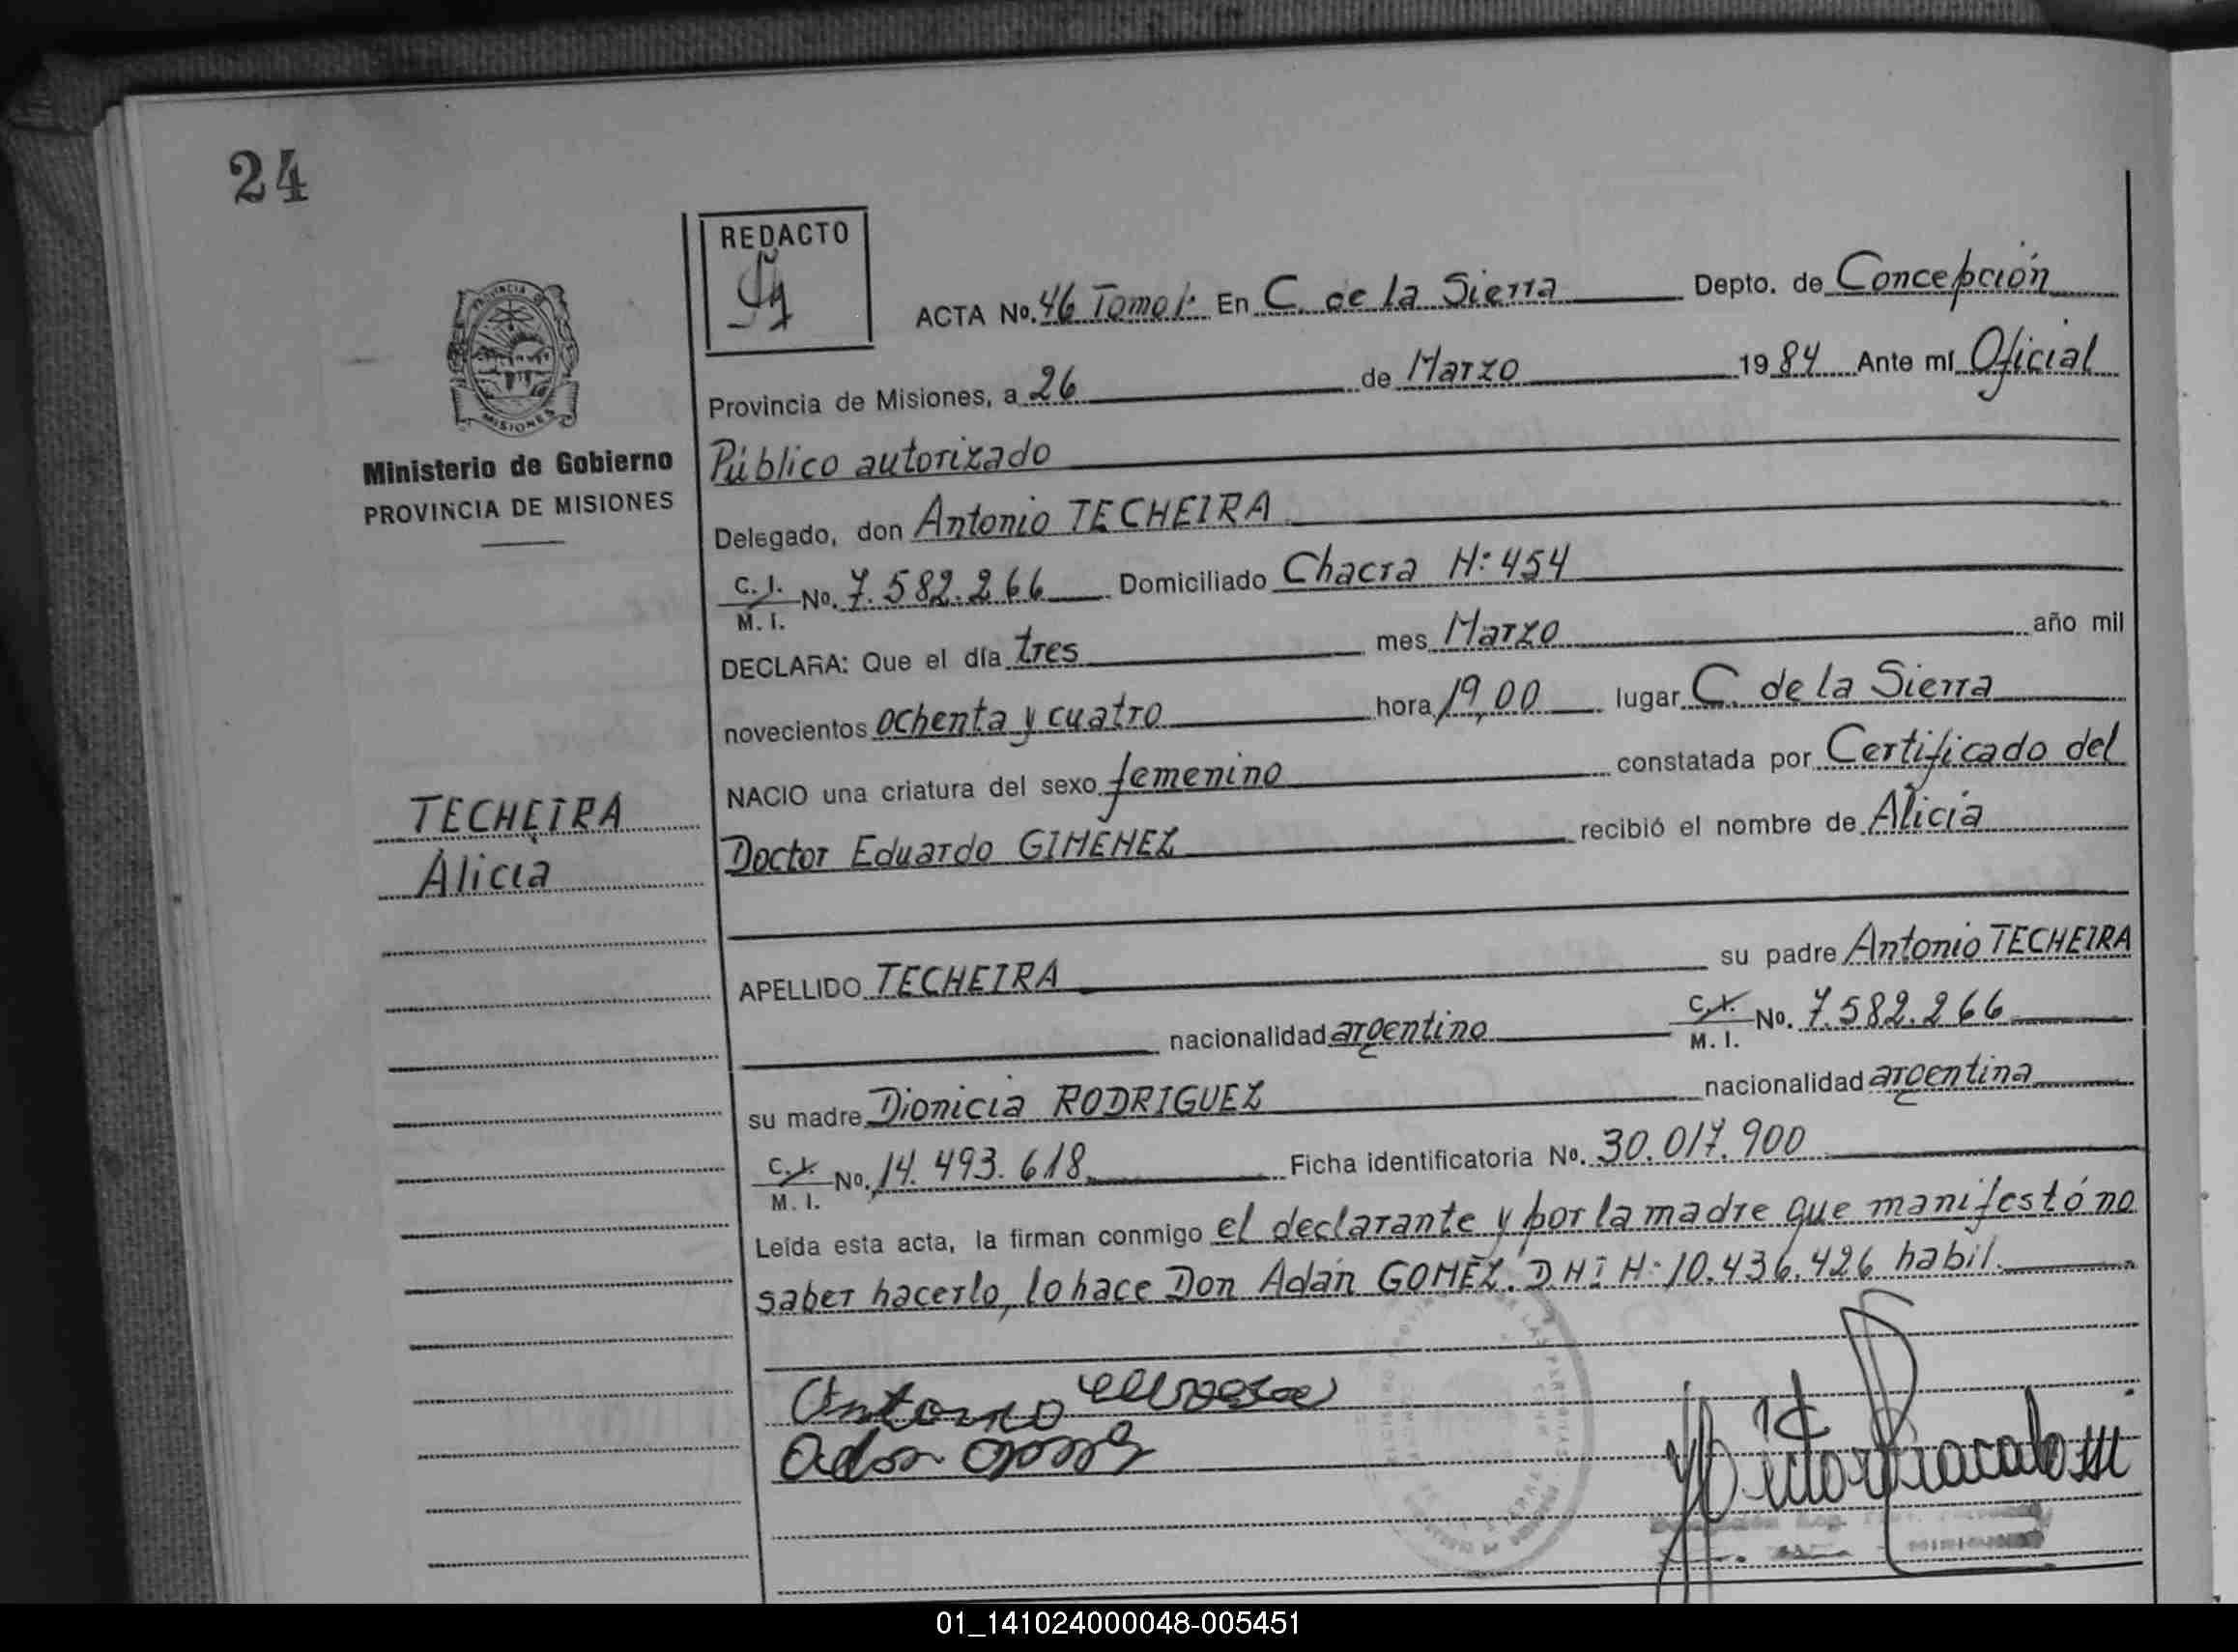 24
REDACTO
ACTA No. 46 Tomo 1º En C. de la Sierra Depto. de Concepción
Provincia de Misiones, a 26 de Marzo 1984 Ante mí Oficial
Público autorizado
Delegado, don Antonio TECHEIRA
C. I. No. 7.582.266 Domiciliado Chacra Nº 454
M. I.
DECLARA: Que el día tres mes Marzo año mil
novecientos ochenta y cuatro hora 19,00 lugar C. de la Sierra
NACIO una criatura del sexo femenino constatada por Certificado del
Doctor Eduardo GIMENEZ recibió el nombre de Alicia
APELLIDO TECHEIRA su padre Antonio TECHEIRA
nacionalidad argentino C. I. No. 7.582.266
M. I.
su madre Dionicia RODRIGUEZ nacionalidad argentina
C. I. No. 14.493.618 Ficha identificatoria No. 30.017.900
M. I.
Leída esta acta, la firman conmigo el declarante y por la madre que manifestó no
saber hacerlo, lo hace Don Adán GOMEZ. DNI Nº 10.436.426 habil.
Antonio
Adan
PROVINCIA DE
MISIONES
Ministerio de Gobierno
PROVINCIA DE MISIONES
TECHEIRA
Alicia
01_141024000048-005451